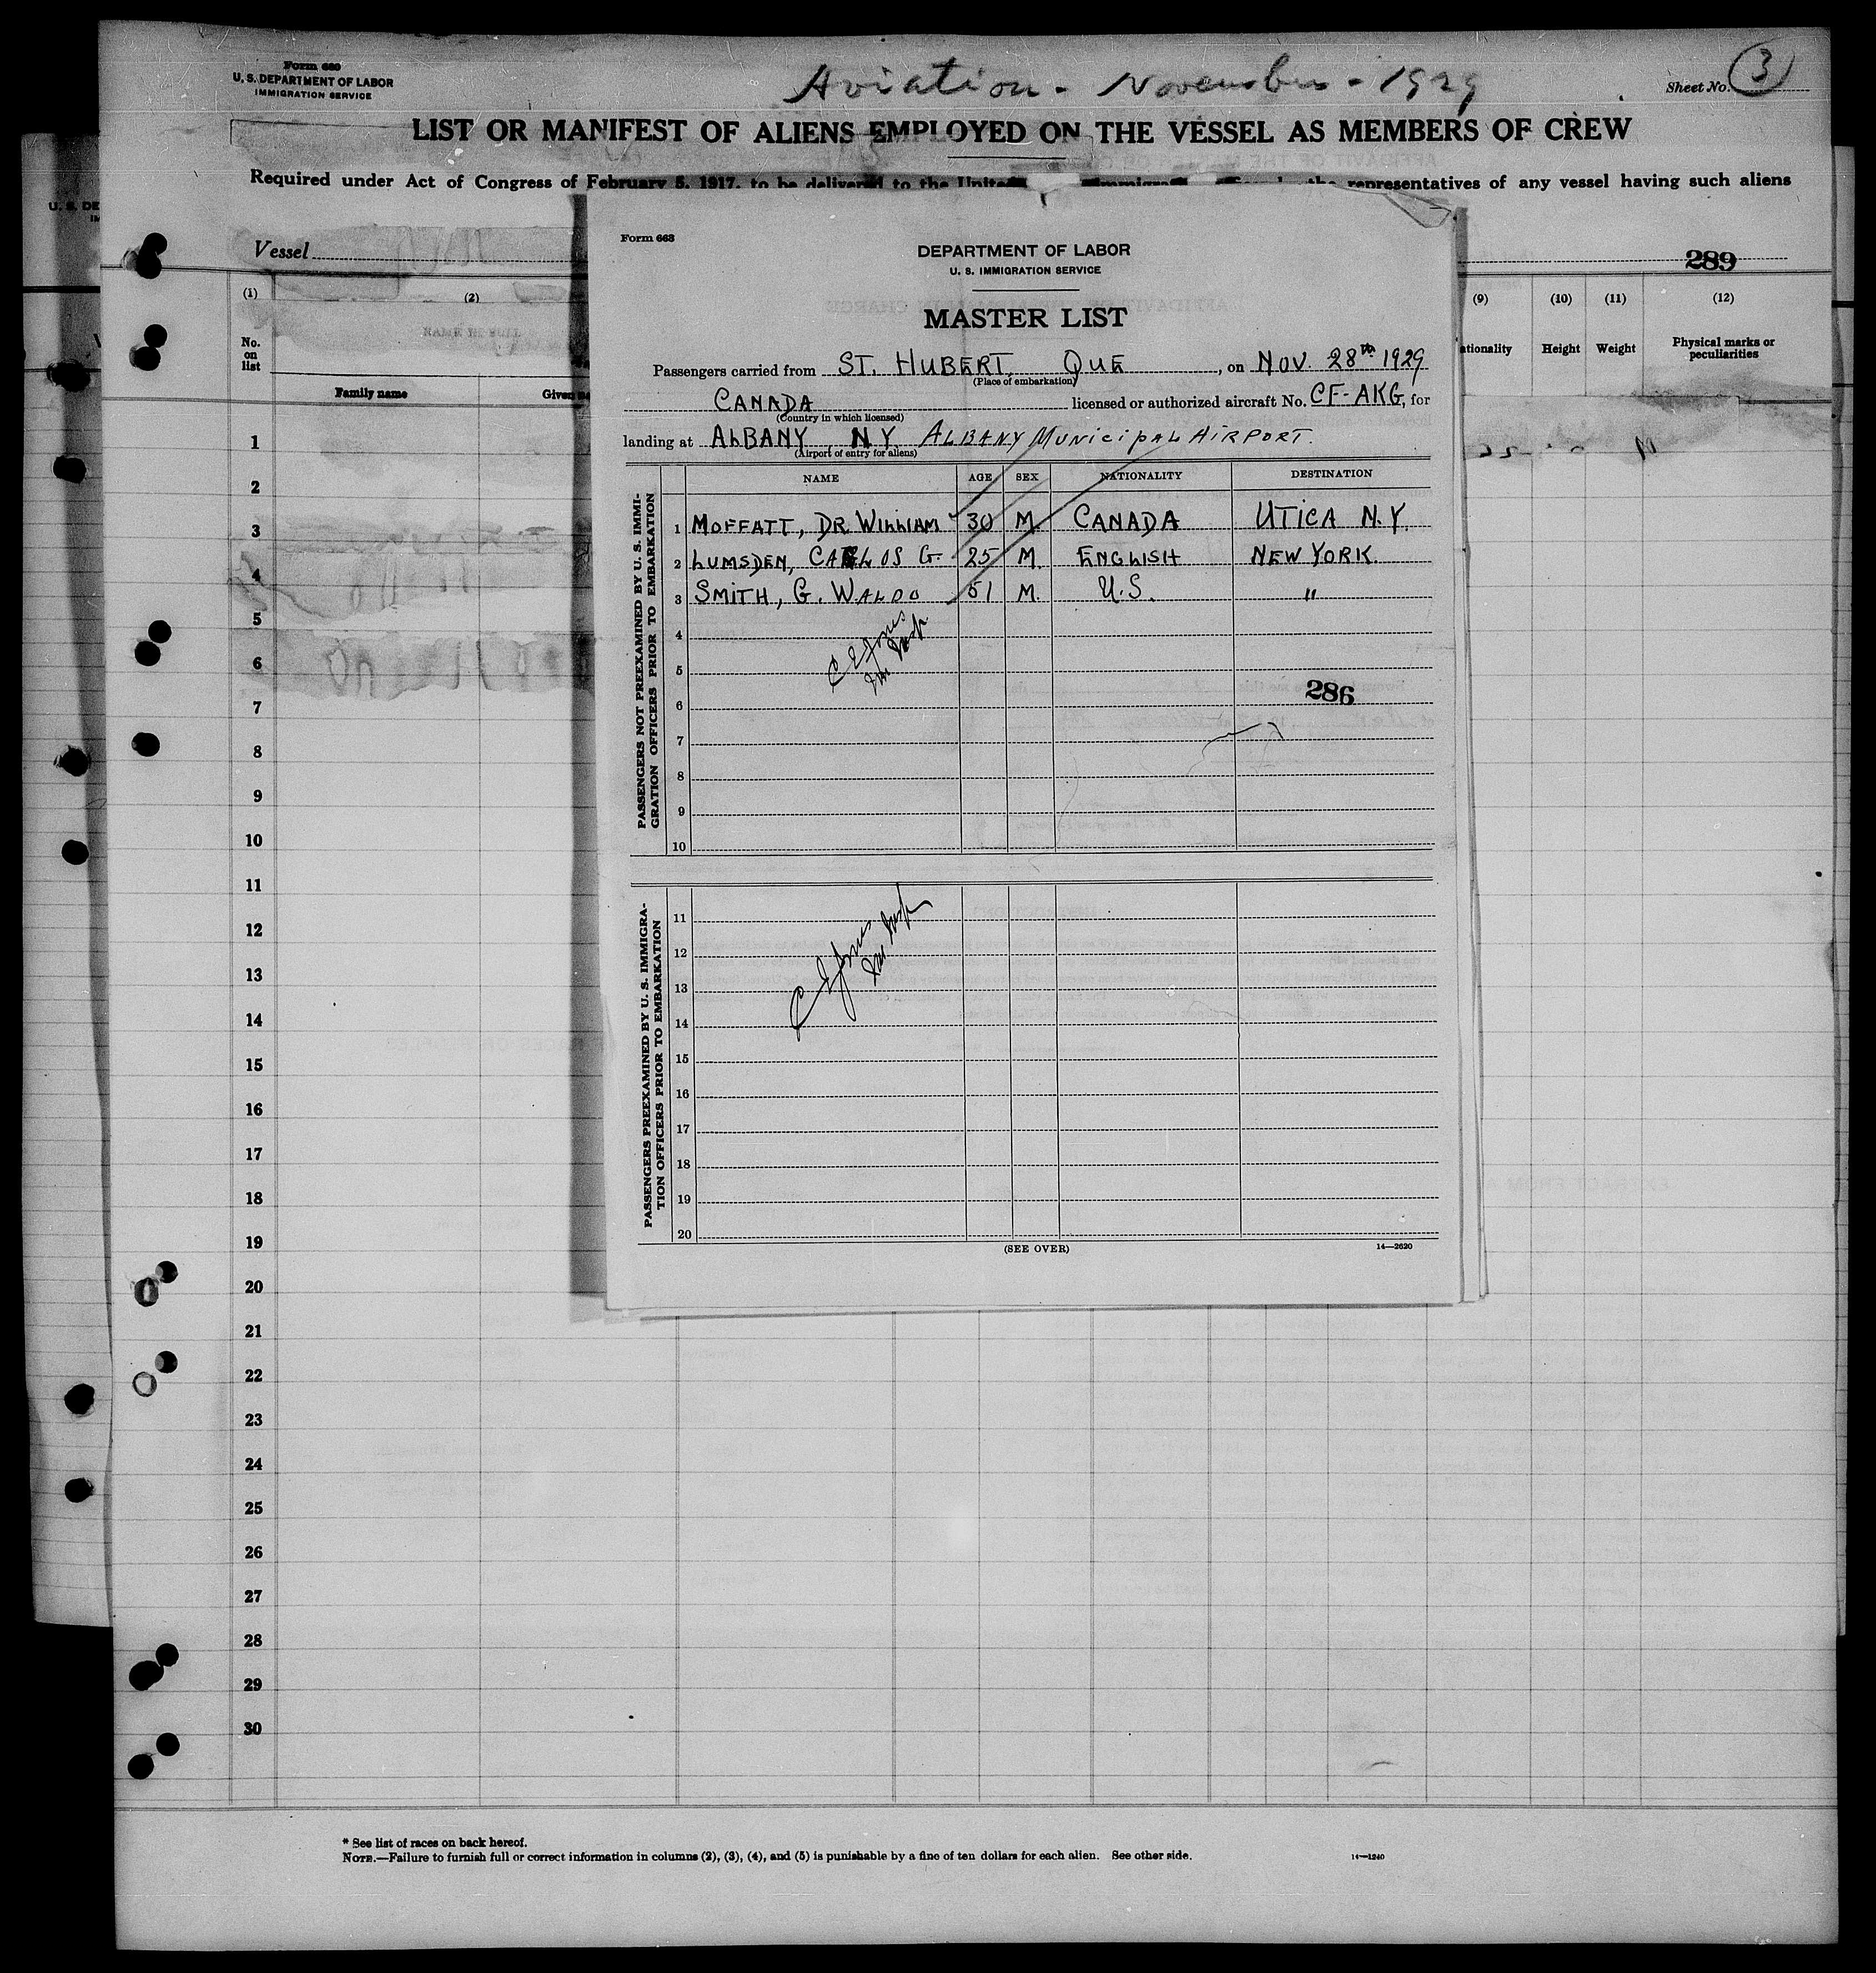 Form 689
U. S. DEPARTMENT OF LABOR
IMMIGRATION SERVICE
Aviation - November - 1929
Sheet No. 3
LIST OR MANIFEST OF ALIENS EMPLOYED ON THE VESSEL AS MEMBERS OF CREW
Required under Act of Congress of February 5, 1917, to be delivered to the United representatives of any vessel having such aliens
Vessel
289
(1) (2) (9) (10) (11) (12)
NAME IN FULL
No. on list
Family name Given
ationality Height Weight Physical marks or peculiarities
Form 663
DEPARTMENT OF LABOR
U. S. IMMIGRATION SERVICE
MASTER LIST
Passengers carried from ST. HUBERT, QUE, on NOV. 28th 1929
(Place of embarkation)
CANADA licensed or authorized aircraft No. CF-AKG, for
(Country in which licensed)
landing at ALBANY, N.Y. ALBANY MUNICIPAL AIRPORT.
(Airport of entry for aliens)
NAME AGE SEX NATIONALITY DESTINATION
PASSENGERS NOT PREEXAMINED BY U. S. IMMI-
GRATION OFFICERS PRIOR TO EMBARKATION
1 MOFFATT, DR WILLIAM 30 M CANADA UTICA N.Y.
2 LUMSDEN, CARLOS G. 25 M. ENGLISH NEW YORK.
3 SMITH, G. WALDO 51 M. U.S. "
4
C E Jones
5
286
6
7
8
9
10
PASSENGERS PREEXAMINED BY U. S. IMMIGRA-
TION OFFICERS PRIOR TO EMBARKATION
11
12
C E Jones
13
14
15
16
17
18
19
20
(SEE OVER) 14—2620
1
2
3
4
5
6
7
8
9
10
11
12
13
14
15
16
17
18
19
20
21
22
23
24
25
26
27
28
29
30
* See list of races on back hereof.
NOTE.—Failure to furnish full or correct information in columns (2), (3), (4), and (5) is punishable by a fine of ten dollars for each alien. See other side. 14—1240